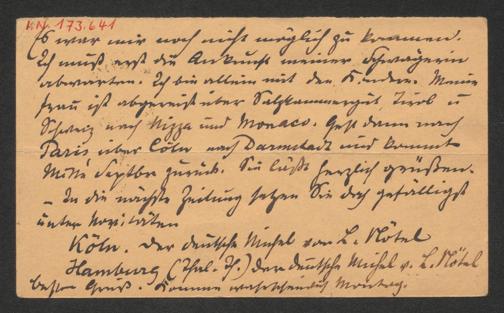 KN 173.641
Es war mir noch nicht möglich zu kommen.
Ich muß erst die Ankunft meiner Schwägerin
abwarten. Ich bin allein mit den Kindern. Meine
Frau ist abgereist über Salzkammergut, Tirol u
Schweiz nach Nizza und Monaco. Geht dann nach
Paris über Cöln nach Darmstadt und kommt
Mitte Septbr zurück. Sie läßt herzlich grüßen.
– In die nächste Zeitung setzen Sie doch gefälligst
unter Novitäten
Köln. Der deutsche Michel von L. Nötel
Hamburg (Thal. Th.) Der deutsche Michel v. L. Nötel
besten Gruß. Komme wahrscheinlich Montag.